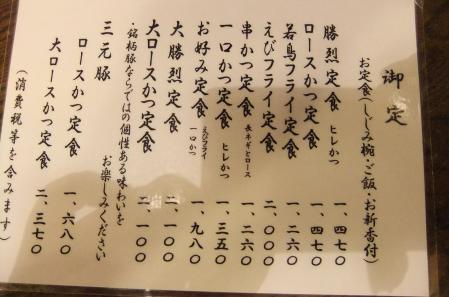 御定
お定食(しじみ椀・ご飯・お新香付)
勝烈定食 ヒレかつ 一、四七〇
ロースかつ定食 一、四七〇
若鳥フライ定食 一、二六〇
えびフライ定食 二、〇〇〇
串かつ定食 長ネギとロース 一、二六〇
一口かつ定食 ヒレかつ 一、三五〇
お好み定食 えびフライ 一口かつ 一、九八〇
大勝烈定食 二、一〇〇
大ロースかつ定食 二、一〇〇
・銘柄豚ならではの個性ある味わいを
お楽しみください
三元豚
ロースかつ定食 一、六八〇
大ロースかつ定食 二、三七〇
(消費税等を含みます)